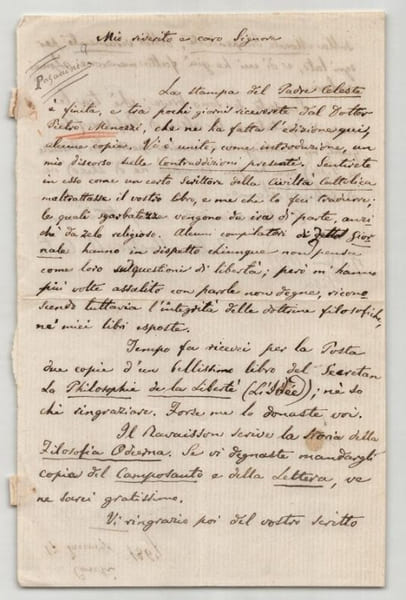 Mio riverito e caro Signore
La stampa del Padre Celeste
è finita, e tra pochi giorni riceverete dal Dottor
Pietro Menozzi, che ne ha fatta l'edizione qui,
alcune copie. Vi è unito, come introduzione, un
mio discorso sulle Contraddizioni presenti. Sentirete
in esso come un certo Scrittore della Civiltà Cattolica
maltrattasse il vostro libro, e me che lo feci tradurre;
le quali sgarbatezze vengono da ira di parte, anzi
che da zelo religioso. Alcuni compilatori di Gior
nale hanno in dispetto chiunque non pensa
come loro su questioni di libertà; però m'hanno
più volte assalito con parole non degne, ricono
scendo tuttavia l'integrità delle dottrine filosofiche,
ne' miei libri esposte.
Tempo fa ricevei per la Posta
due copie d'un bellissimo libro del Secretan
La Philosophie de la Liberté (L'Idée); nè so
chi ringraziare. Forse me lo donaste voi.
Il Ravaisson scrive la Storia della
Filosofia Odierna. Se vi degnaste mandargli
copia del Camposanto e della Lettera, ve
ne sarei gratissimo.
Vi ringrazio poi del vostro scritto